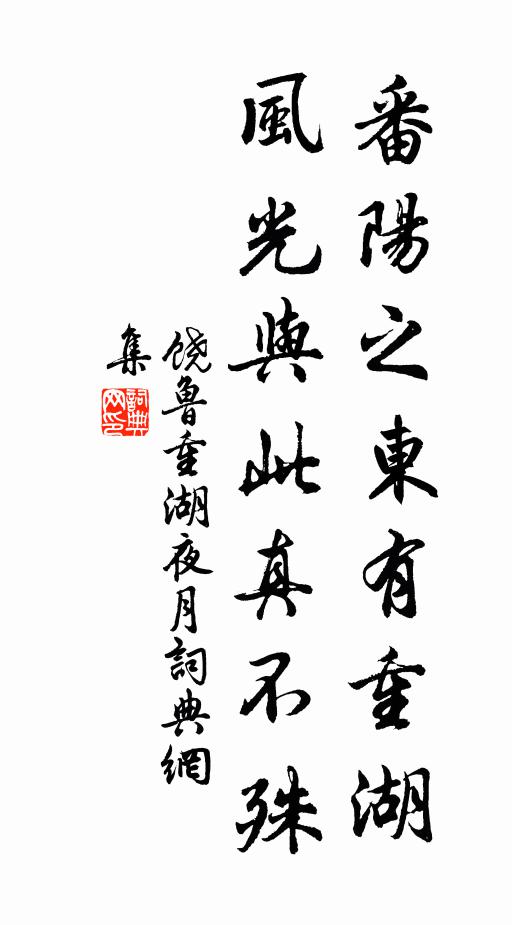 番陽之東有重湖
風光與此真不殊
饶魯重湖夜月詞典網
集
詞典
网印